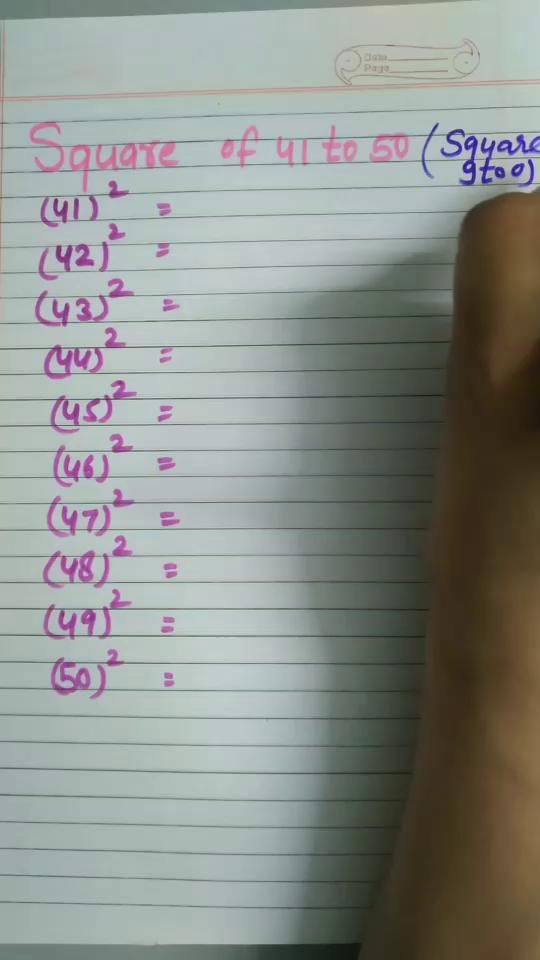 Date
Page
Square of 41 to 50 (Square
9 to 0)
(41)² =
(42)² =
(43)² =
(44)² =
(45)² =
(46)² =
(47)² =
(48)² =
(49)² =
(50)² =